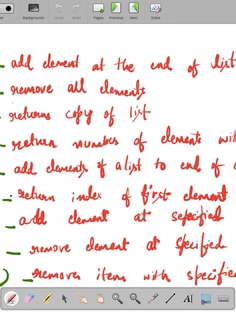 Background Undo Redo Pages Previous Next Erase
- add element at the end of list
- remove all elements
- returns copy of list
- return number of elements with
- add elements of a list to end of
- return index of first element
- add element at specified
- remove element at specified
- removes item with specifie